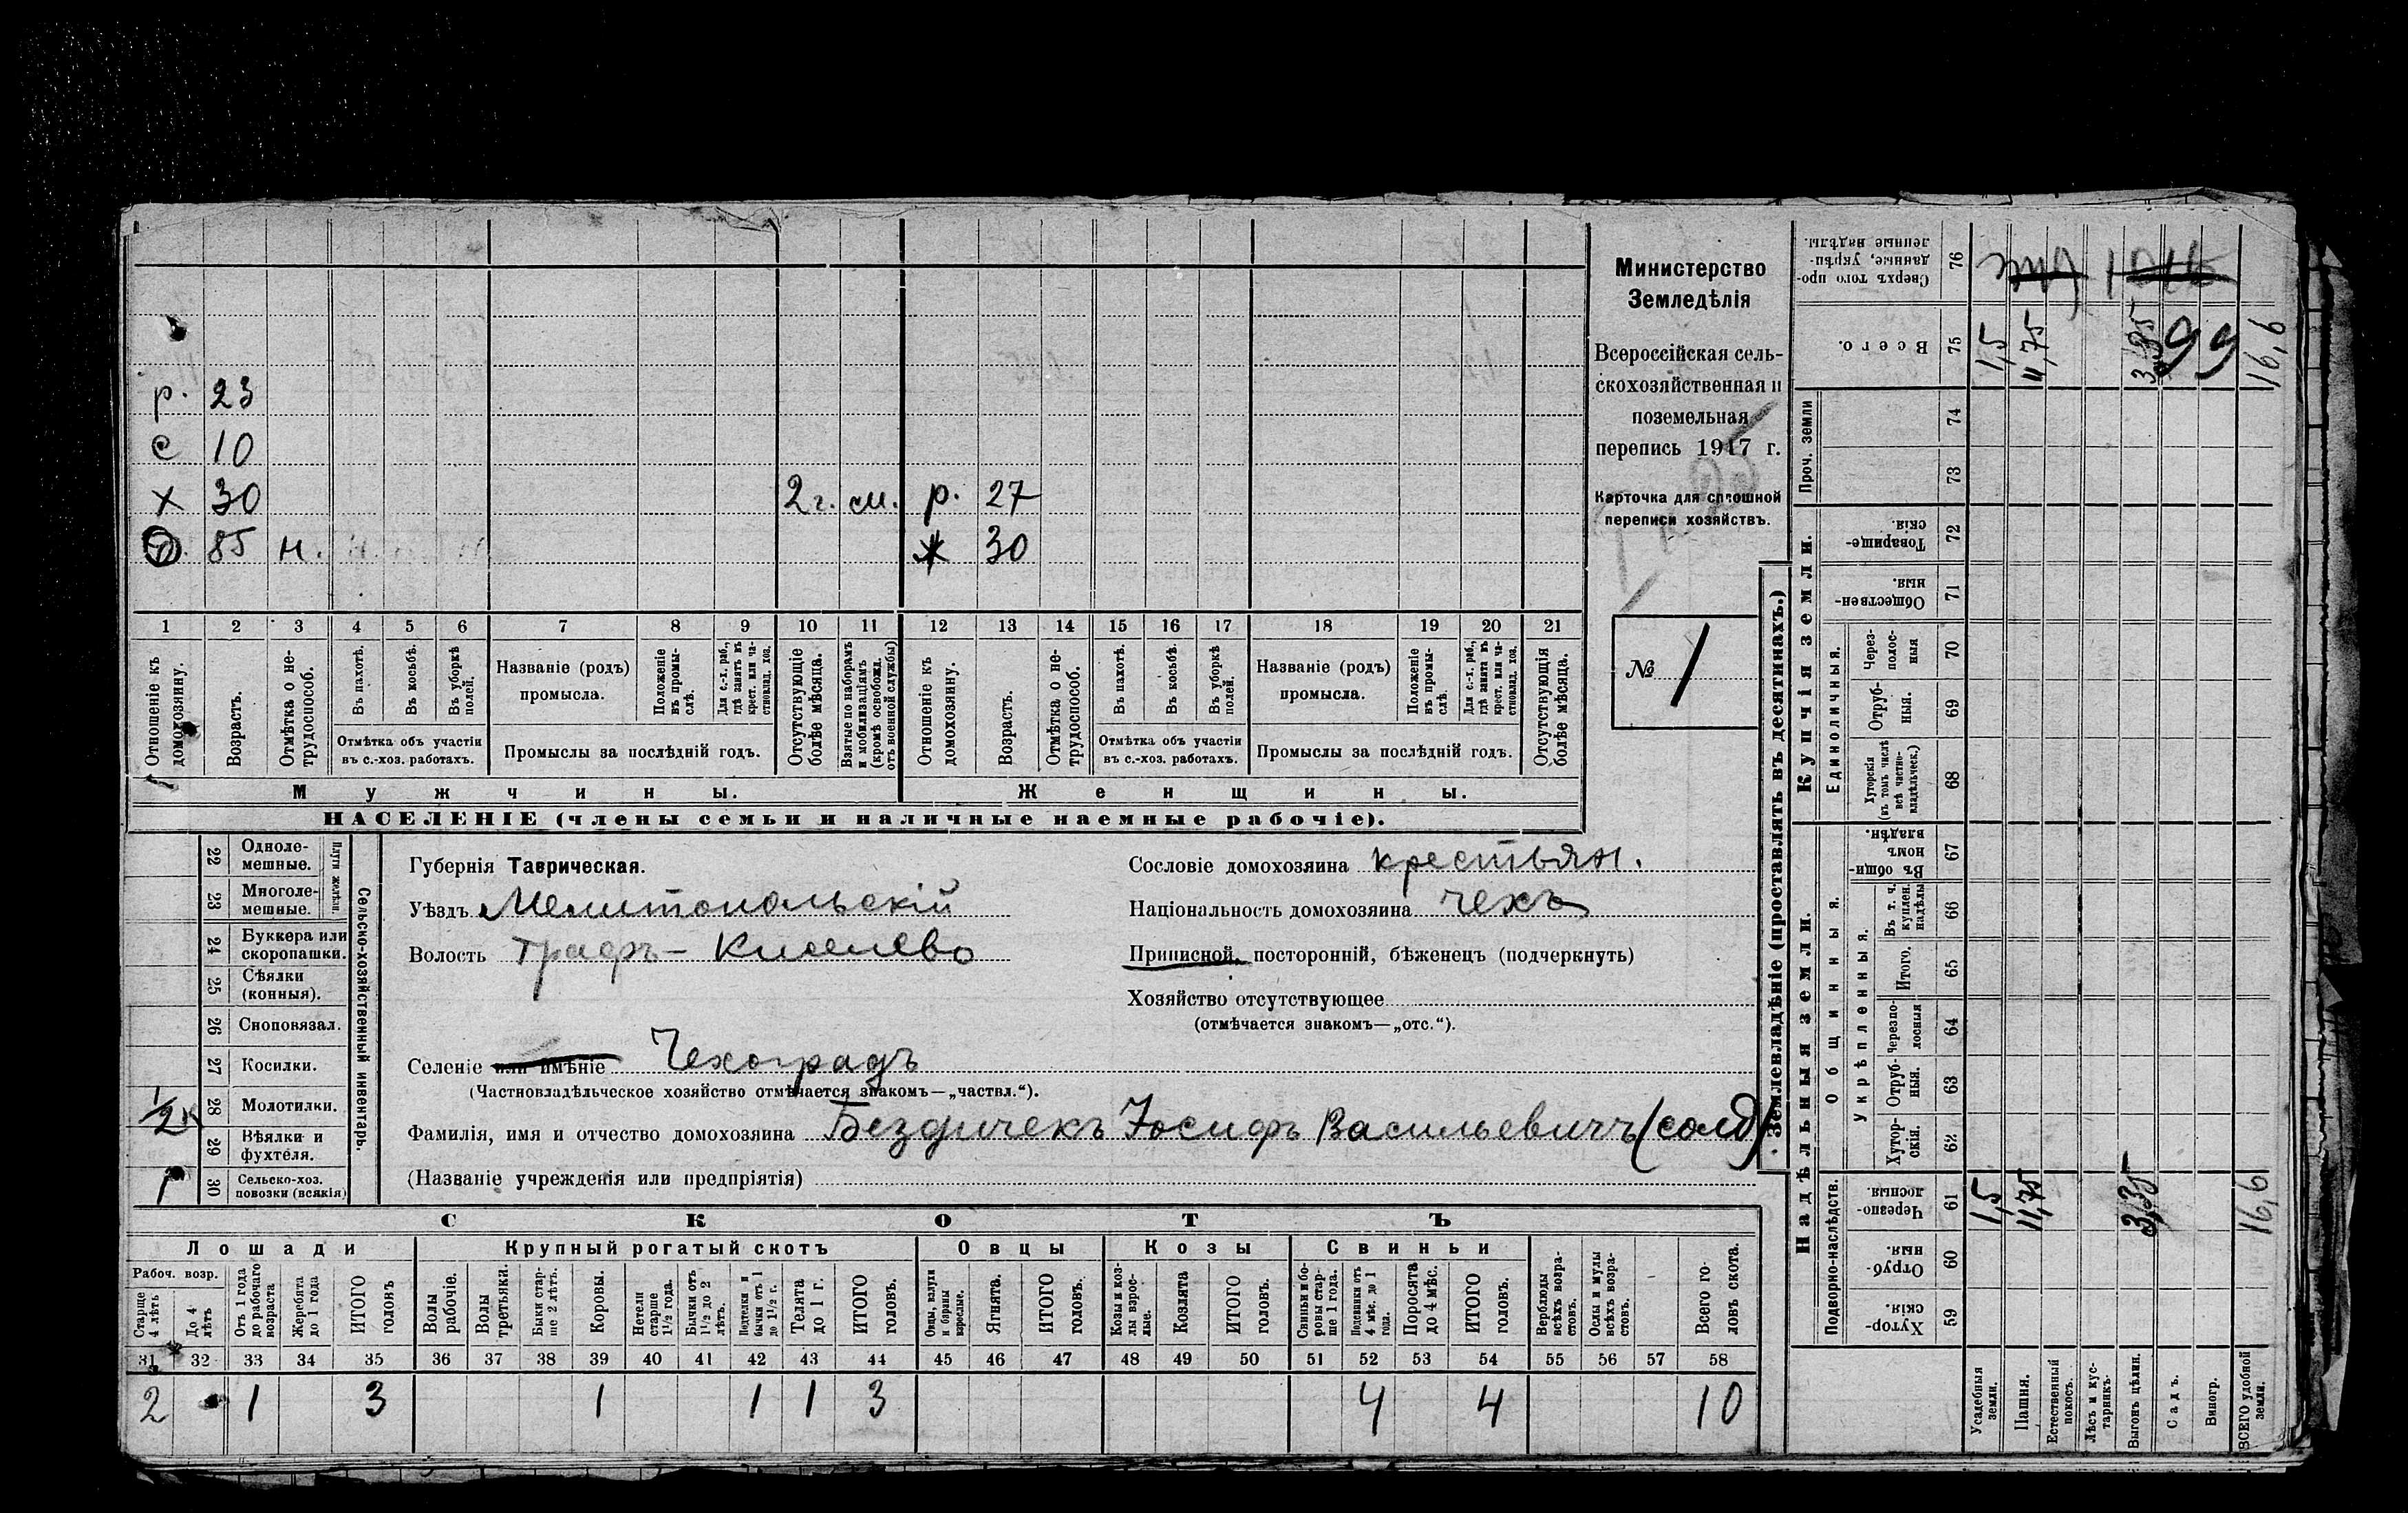 р. 23
с 10
х 30 2 г. см. р. 27
85 н. ж 30
1 2 3 4 5 6 7 8 9 10 11 12 13 14 15 16 17 18 19 20 21
Отношеніе къ домохозяину.
Возрастъ.
Отмѣтка о нетрудоспособ.
Въ пахотѣ.
Въ косьбѣ.
Въ уборкѣ полей.
Отмѣтка объ участіи въ с.-хоз. работахъ.
Названіе (родъ) промысла.
Положеніе въ промыслѣ.
Для с.-х. раб., гдѣ занятъ въ крест. или частновлад. хоз.
Промыслы за послѣдній годъ.
Отсутствующіе болѣе мѣсяца.
Взятые по наборамъ и мобилизаціямъ (кромѣ освобожд. отъ военной службы)
Отношеніе къ домохозяину.
Возрастъ.
Отмѣтка о нетрудоспособ.
Въ пахотѣ.
Въ косьбѣ.
Въ уборкѣ полей.
Отмѣтка объ участіи въ с.-хоз. работахъ.
Названіе (родъ) промысла.
Положеніе въ промыслѣ.
Для с.-х. раб., гдѣ занята въ крест. или частновлад. хоз.
Промыслы за послѣдній годъ.
Отсутствующія болѣе мѣсяца.
Мужчины. Женщины.
НАСЕЛЕНІЕ (члены семьи и наличные наемные рабочіе).
Министерство
Земледѣлія
Всероссійская сель-
скохозяйственная и
поземельная
перепись 1917 г.
Карточка для сплошной
переписи хозяйствъ.
№ 1
22 Одноле-мешные.
23 Многоле-мешные.
Плуги желѣзн.
24 Буккера или скоропашки.
25 Сѣялки (конныя).
26 Сноповязал.
27 Косилки.
28 Молотилки. 1/2
29 Вѣялки и фухтеля.
30 Сельско-хоз. повозки (всякія) 1
Сельско-хозяйственный инвентарь.
Губернія Таврическая.
Уѣздъ Мелитопольскій
Волость Графъ-Киселево
Селеніе или имѣніе Чехоградъ
(Частновладѣльческое хозяйство отмѣчается знакомъ—„частвл.“).
Сословіе домохозяина крестьян.
Національность домохозяина чехъ
Приписной, посторонній, бѣженецъ (подчеркнуть)
Хозяйство отсутствующее
(отмѣчается знакомъ—„отс.“).
Фамилія, имя и отчество домохозяина Бездичекъ Іосифъ Васильевичъ (солд)
(Названіе учрежденія или предпріятія)
СКОТЪ
Лошади Крупный рогатый скотъ Овцы Козы Свиньи
Рабоч. возр.
Старше 4 лѣтъ
До 4 лѣтъ
Отъ 1 года до рабочаго возраста
Жеребята до 1 года
ИТОГО головъ
Волы рабочіе.
Волы третьяки.
Быки старше 2 лѣтъ.
Коровы.
Нетели старше 1 1/2 года.
Бычки отъ 1 1/2 до 2 лѣтъ.
Подтелки и бычки отъ 1 до 1 1/2 г.
Телята до 1 г.
ИТОГО головъ.
Овцы, валухи и бараны взрослые.
Ягнята.
ИТОГО головъ.
Козы и козлы взрослые.
Козлята
ИТОГО головъ.
Свиньи и боровы старше 1 года.
Подсвинки отъ 4 мѣс. до 1 года.
Поросята до 4 мѣс.
ИТОГО головъ.
Верблюды всѣхъ возрастовъ.
Ослы и мулы всѣхъ возрастовъ.
Всего головъ скота.
31 32 33 34 35 36 37 38 39 40 41 42 43 44 45 46 47 48 49 50 51 52 53 54 55 56 57 58
2 1 3 1 1 1 3 4 4 10
Землевладѣніе (проставлять въ десятинахъ.)
Сверхъ того проданные, укрѣпленные надѣлы. 76
Всего. 75 1,5 11,75 3,35 99 16,6
Проч. земли 74 73
Купчія земли.
Товарищескія. 72
Общественныя. 71
Единоличныя.
Черезполосныя 70
Отрубныя. 69
Хуторскія (въ томъ числѣ всѣ частновладѣльческ.) 68
Надѣльныя земли.
Общинныя.
Въ общинномъ владѣн. 67
Укрѣпленныя.
Въ т. ч. куплен. надѣлы 66
Итого. 65
Черезполосныя 64
Отрубныя. 63
Хуторскія. 62
Подворно-наслѣдств.
Черезполосныя. 61 1,5 11,75 3,35 16,6
Отрубныя. 60
Хуторскія. 59
Усадебныя земли.
Пашня.
Естественный покосъ.
Лѣсъ и кустарникъ.
Выгонъ цѣлин.
Садъ.
Виногр.
ВСЕГО удобной земли.